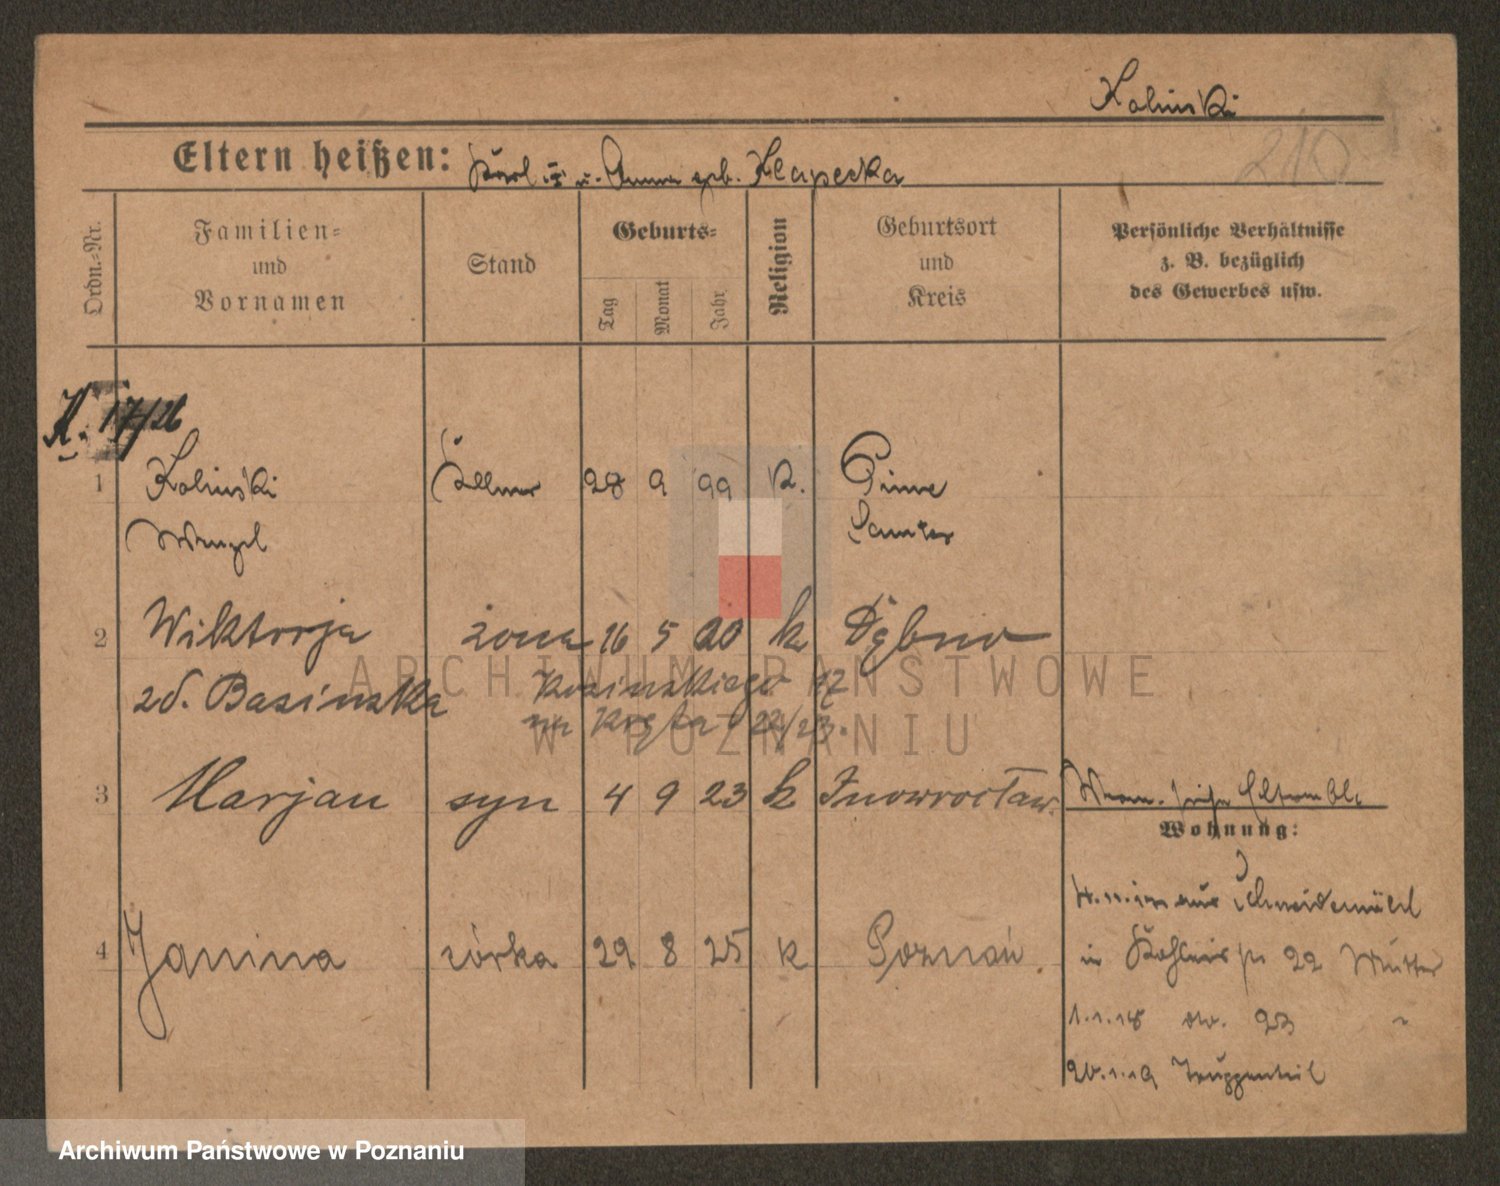 Kolinski
210
Eltern heißen: Karl † u. Anna geb. Klapecka
Ordn.=Nr.
Familien=
und
Vornamen
Stand
Geburts=
Tag
Monat
Jahr
Religion
Geburtsort
und
Kreis
Persönliche Verhältnisse
z. B. bezüglich
des Gewerbes usw.
K. 17/26
1 Kolinski Kellner 28 9 99 K. Pinne
Wenzel Samter
2 Wiktorja żona 16 5 00 k Dębno
zd. Basinska
22/23.
3 Marjan syn 4 9 23 k Inowrocław.
Wohnung:
aus Schneidemühl
4 Janina córka 29 8 25 k Poznań
in 22 Mutter
1.1.18 93 "
20.1.19 Truppenteil
ARCHIWUM PAŃSTWOWE
W POZNANIU
Archiwum Państwowe w Poznaniu